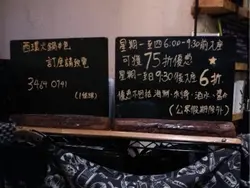 西環火鍋#包
訂座請致電
3469 0791
(1樓理)
星期一至四6:00-9:30前入座
可獲75折優惠
星期一至日9:30後入座6折
優惠不包括海鮮、水、酒水、茶介
(公眾假期除外)